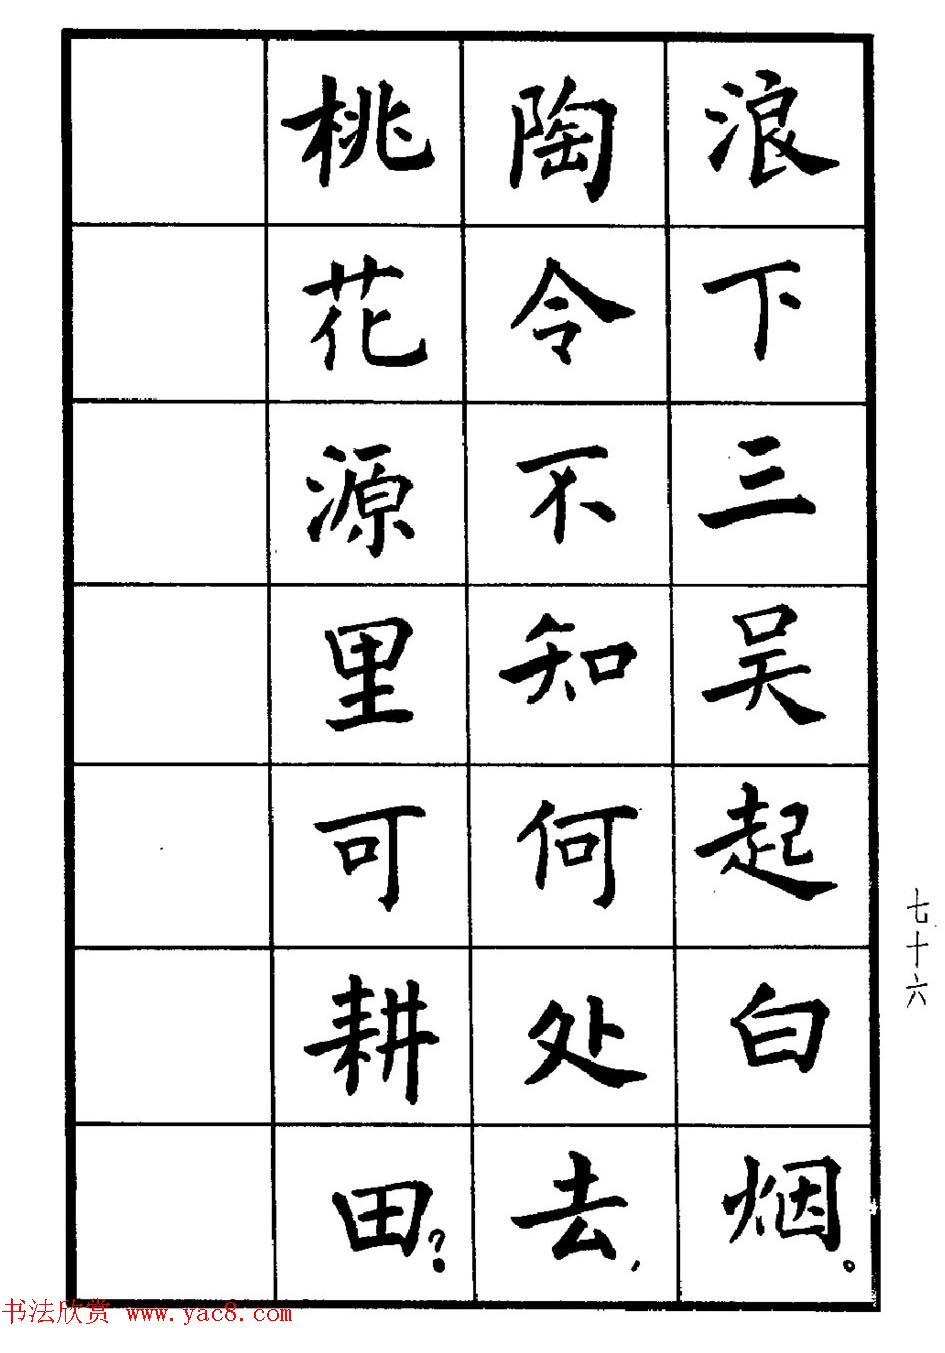 浪下三吴起白烟。
陶令不知何处去，
桃花源里可耕田？
七十六
书法欣赏 www.yac8.com